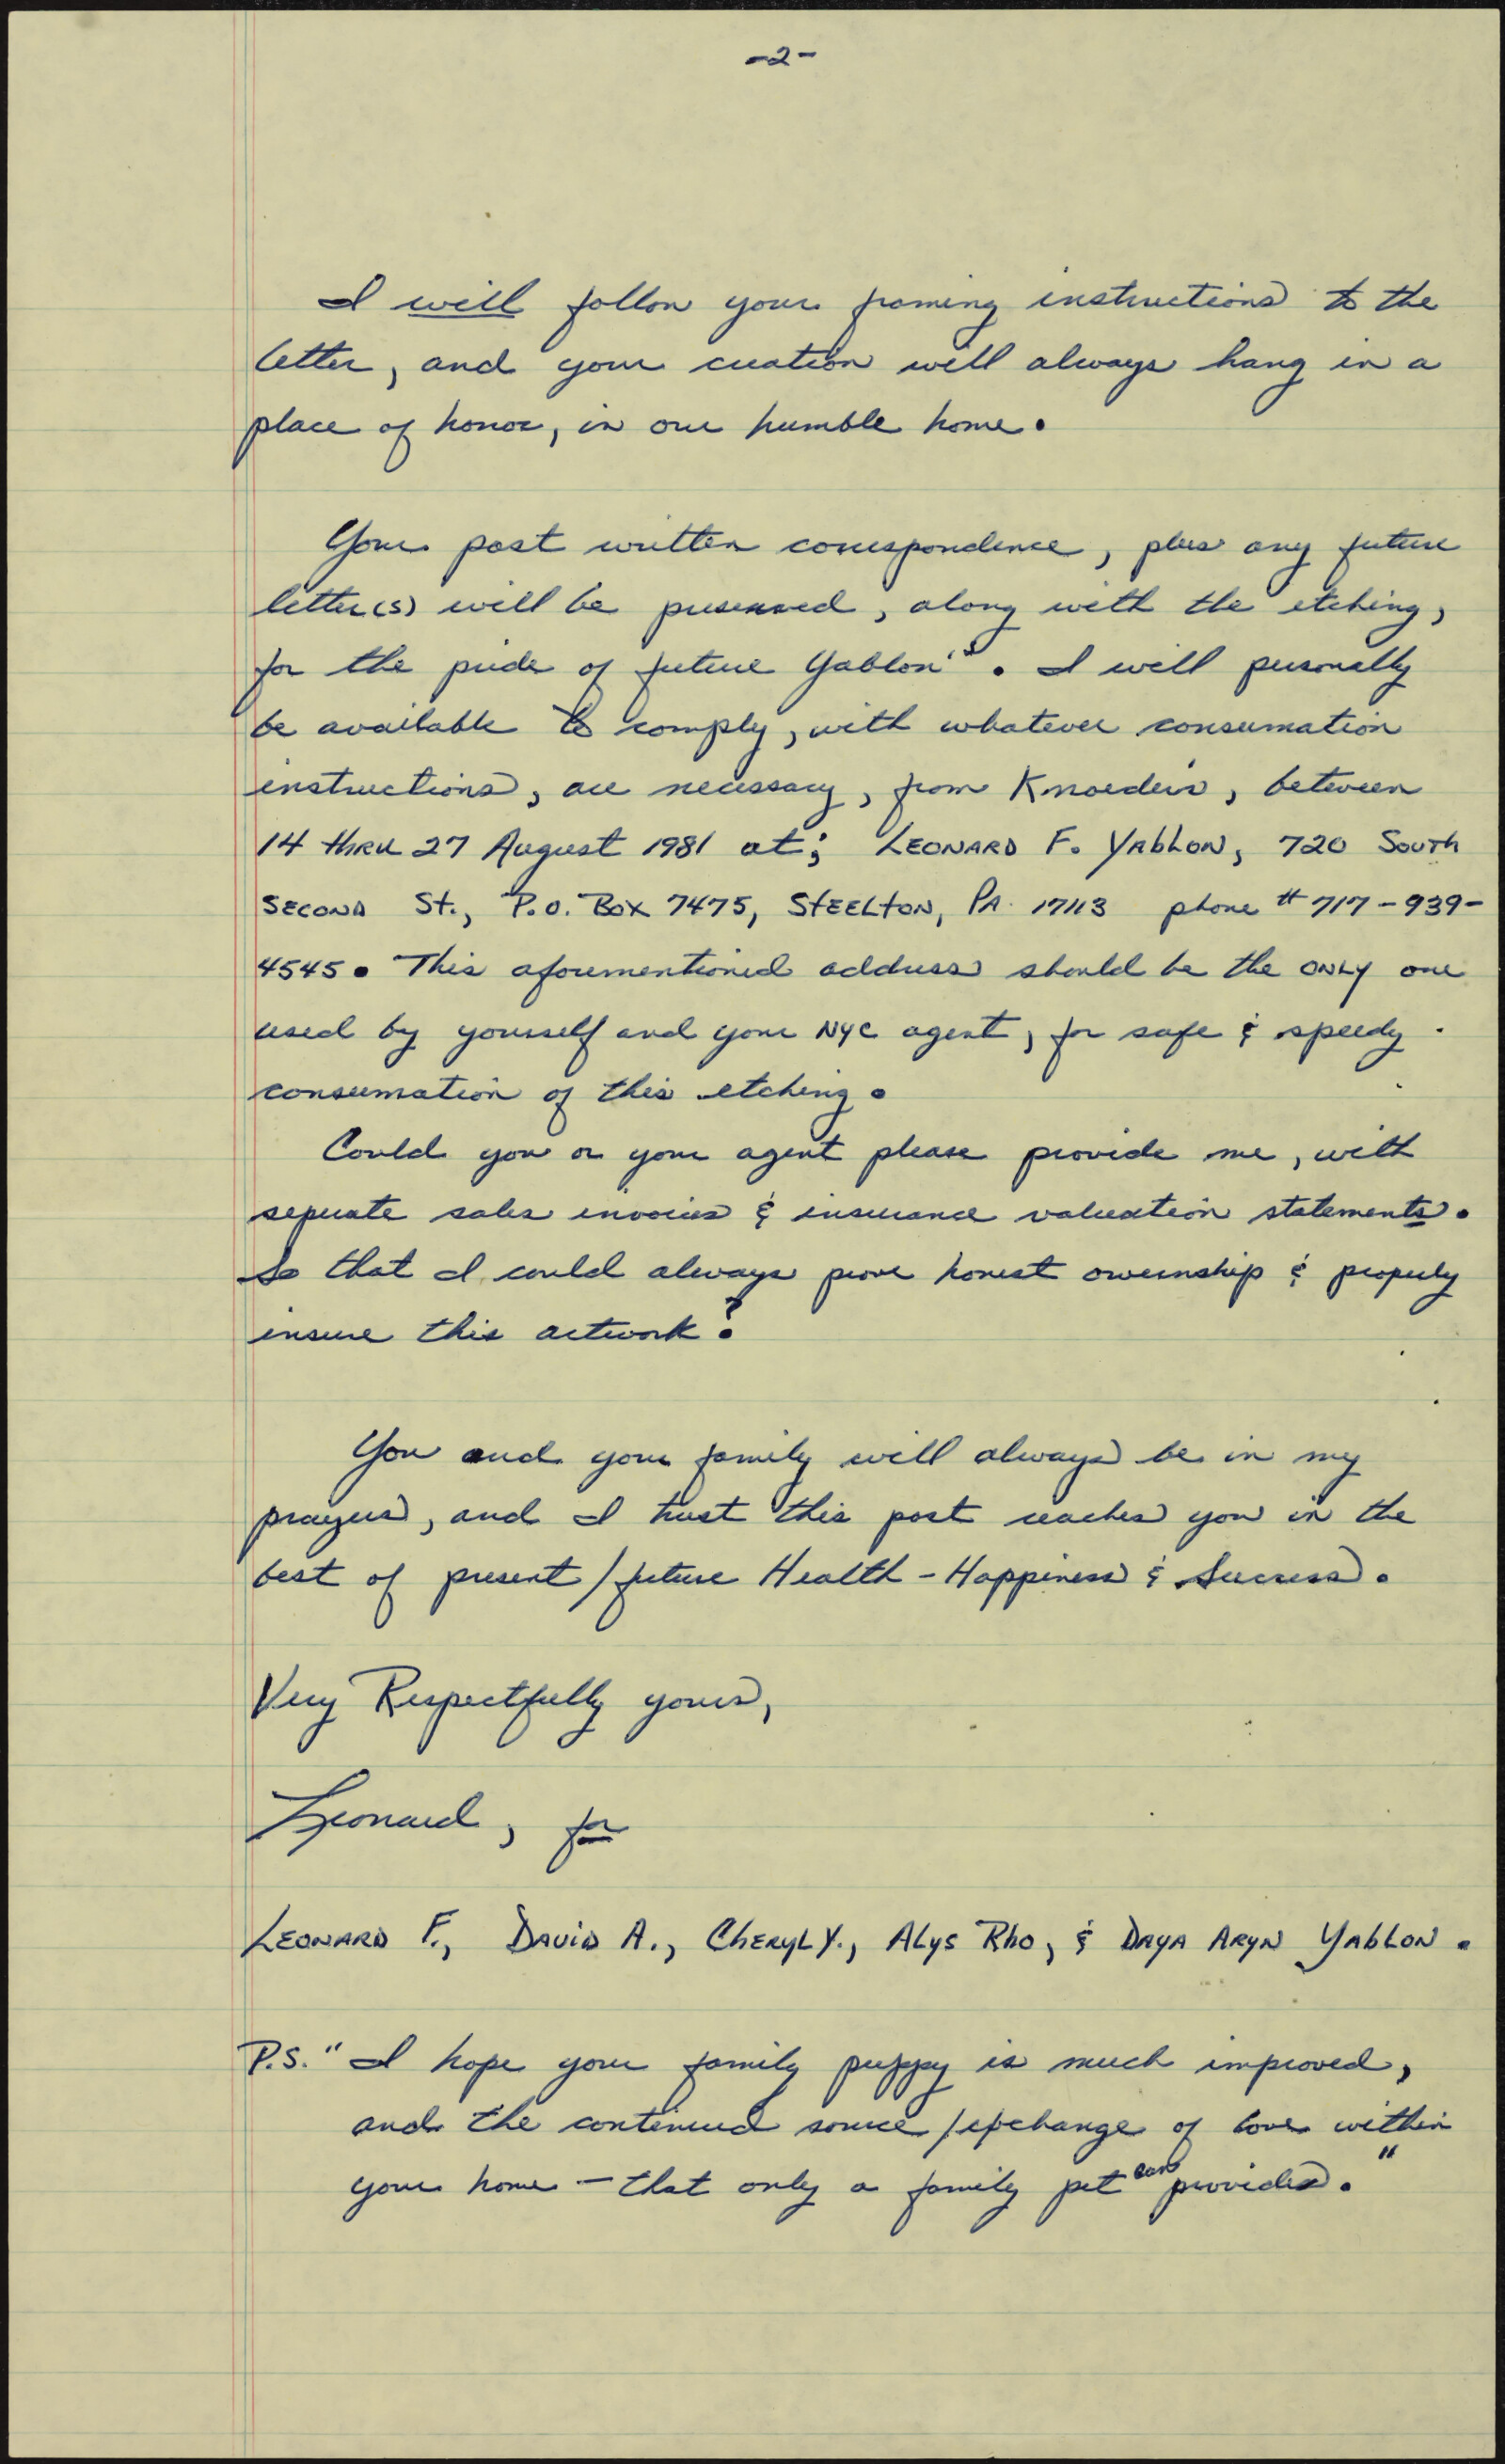 -2-
I will follow your framing instructions to the
letter, and your creation will always hang in a
place of honor, in our humble home.
Your past written correspondence, plus any future
letter(s) will be preserved, along with the etching,
for the pride of future Yablon's. I will personally
be available to comply, with whatever consumation
instructions, are necessary, from Knoeders, between
14 thru 27 August 1981 at; LEONARD F. YABLON, 720 SOUTH
SECOND St., P.O. BOX 7475, STEELTON, PA. 17113 phone # 717-939-
4545. This aforementioned address should be the ONLY one
used by yourself and your NYC agent, for safe & speedy
consumation of this etching.
Could you or your agent please provide me, with
seperate sales invoices & insurance valuation statements.
So that I could always prove honest owernship & properly
insure this artwork?
You and your family will always be in my
prayers, and I trust this post reaches you in the
best of present/future Health - Happiness & Success.
Very Respectfully yours,
Leonard, for
LEONARD F., DAVID A., CHERYL Y., ALYS RHO, & DAYA ARYN YABLON.
P.S. "I hope your family puppy is much improved,
and the continued source/exchange of love within
your home - that only a family pet can provides."